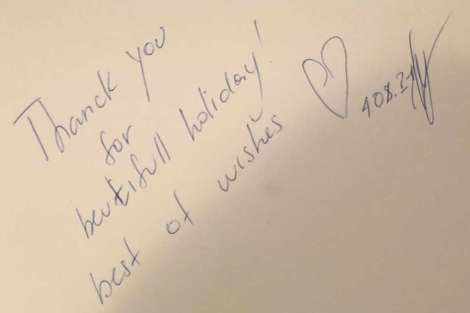 Thanck you
for
beutifull holiday!
best of wishes
408.2